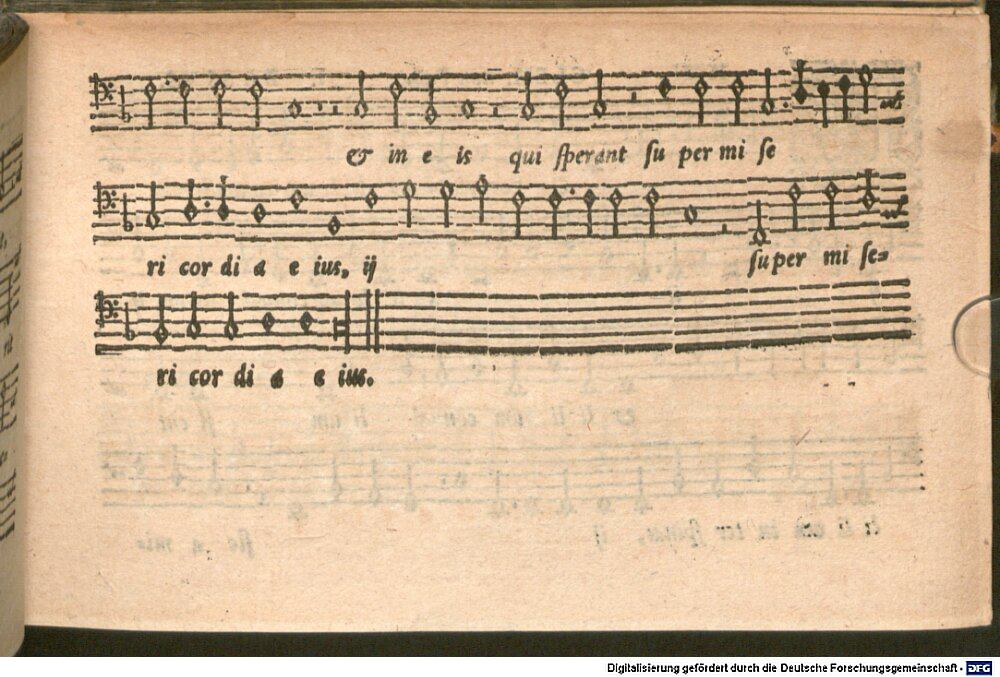 & in e is qui sperant su per mi se
ri cor di a e ius, ij super mi se=
ri cor di a e ius.
Digitalisierung gefördert durch die Deutsche Forschungsgemeinschaft - DFG